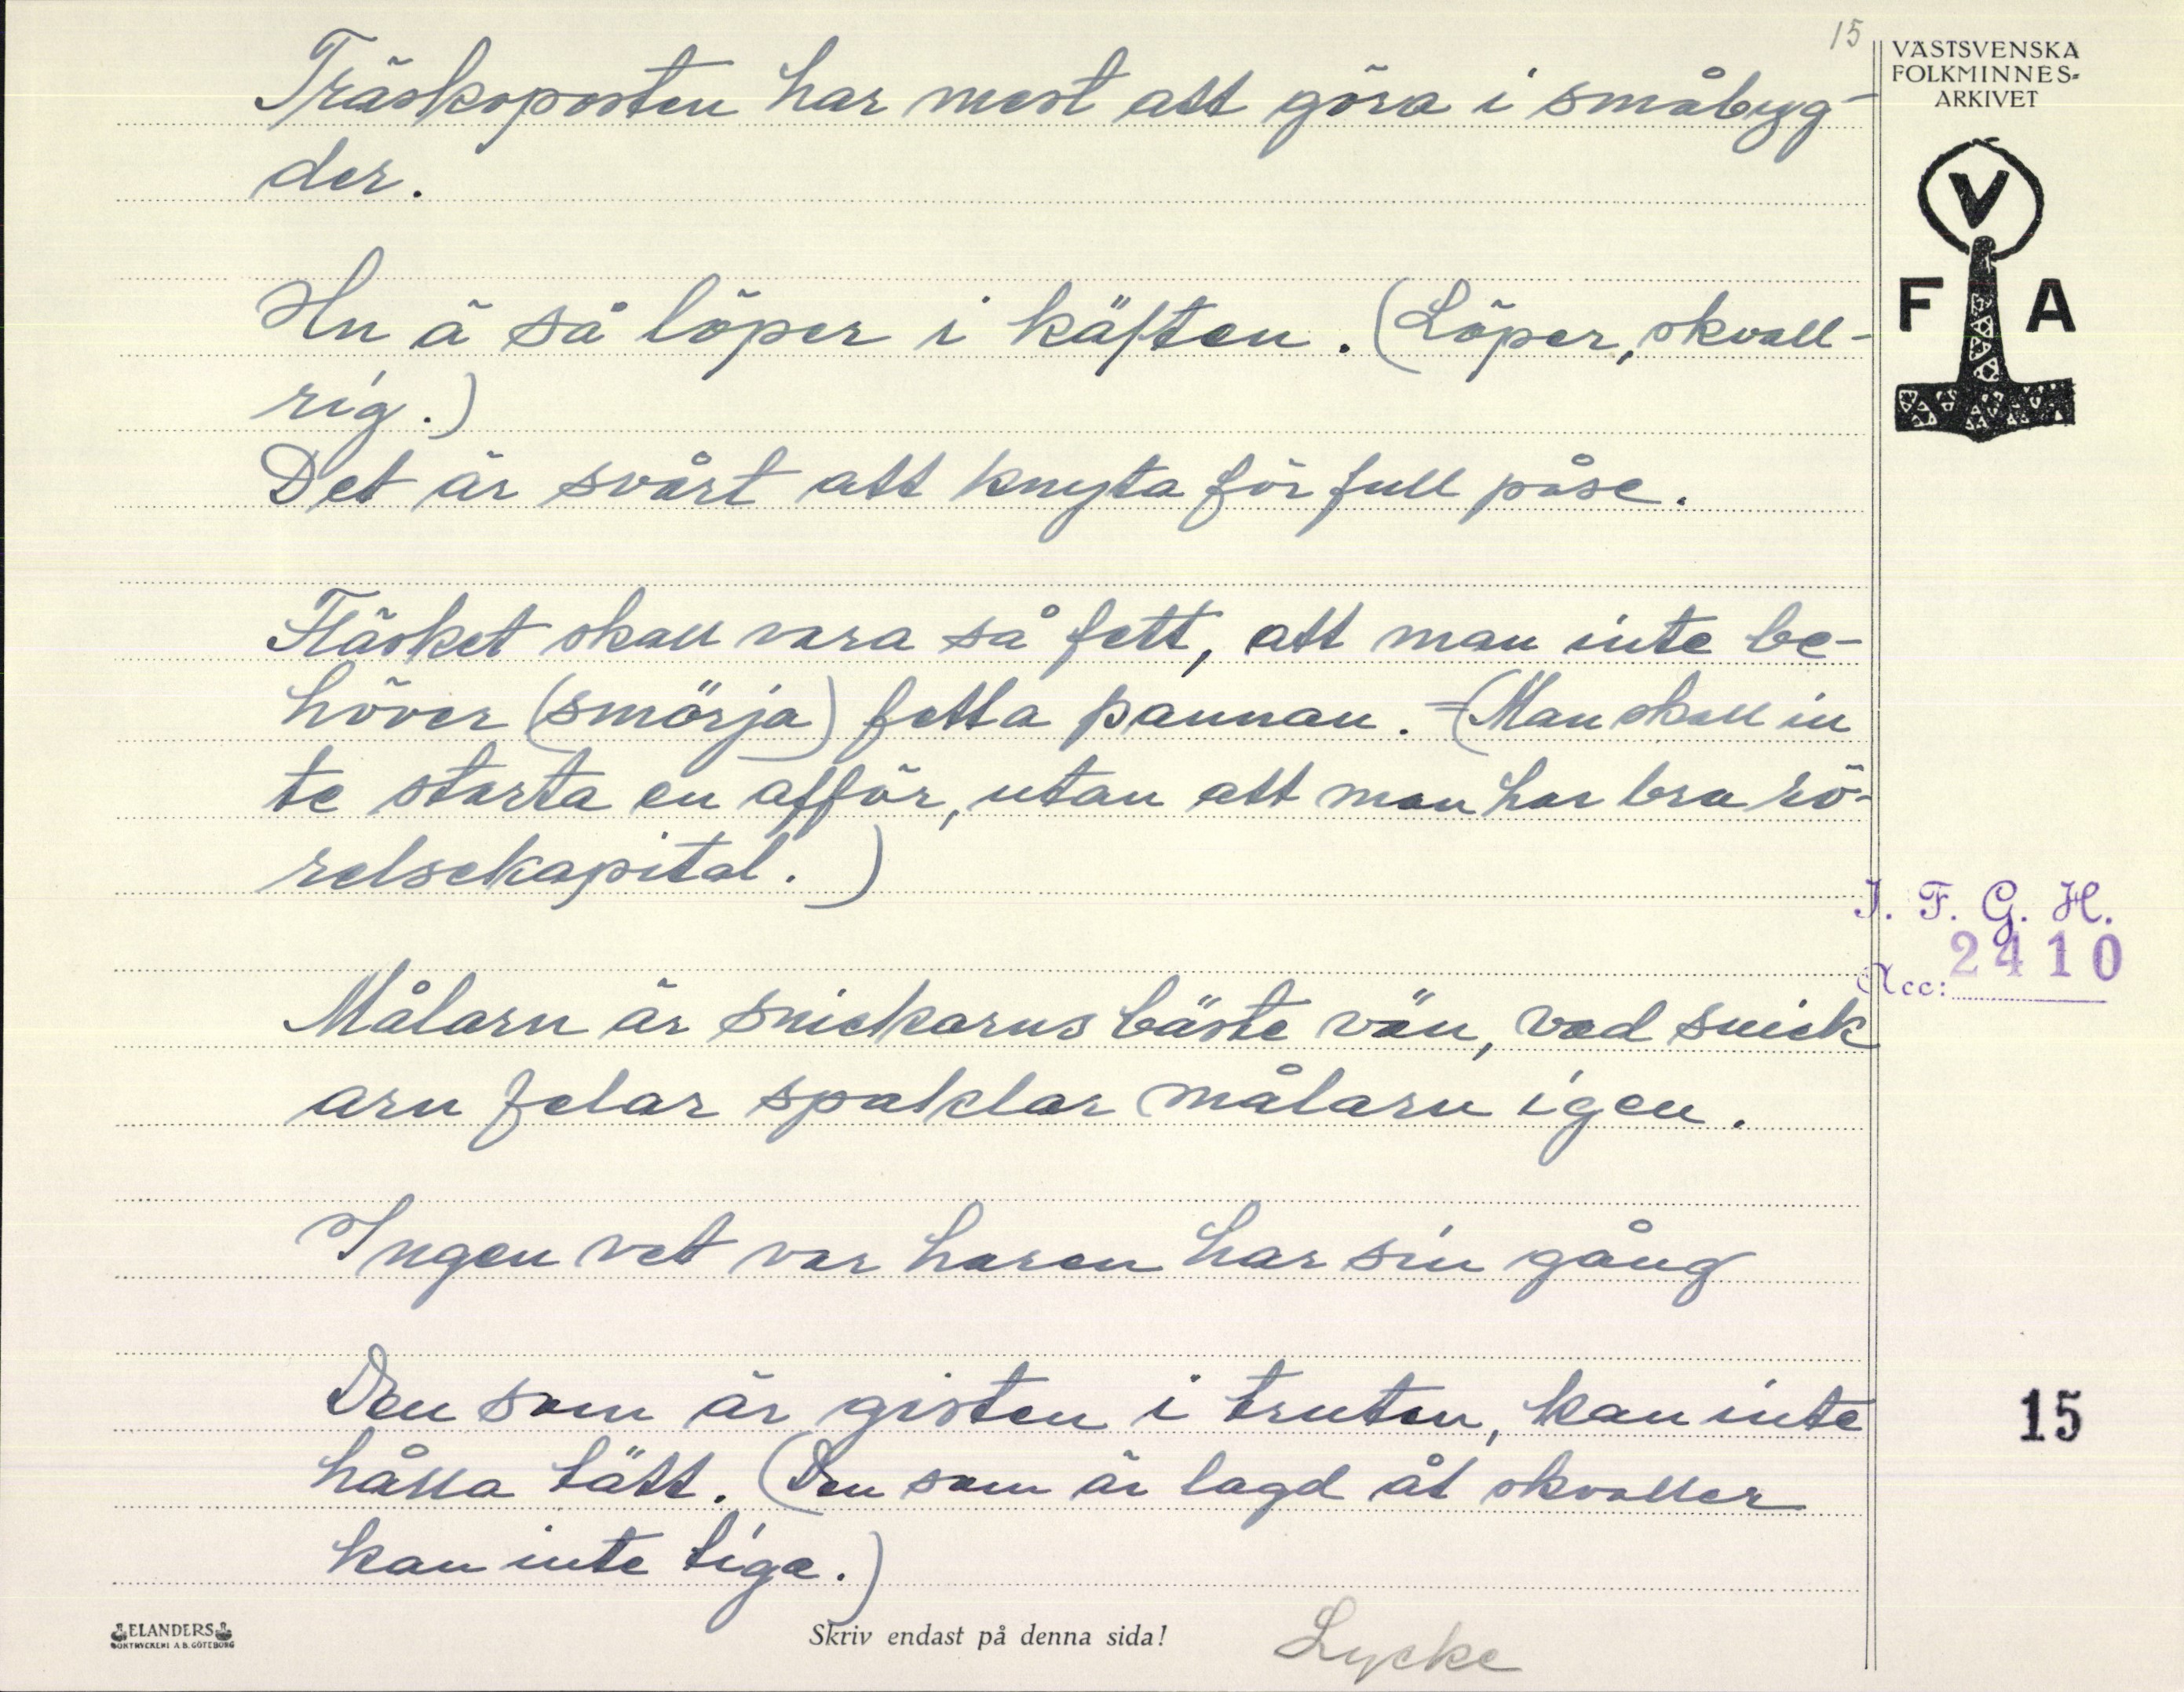 15
VÄSTSVENSKA
FOLKMINNES-
ARKIVET
V
F A
Träskoposten har mest att göra i småbyg-
der.
Hn ä så löper i käften. (Löper, skvall-
rig.)
Det är svårt att knyta för full påse.
Fläsket skall vara så fett, att man inte be-
höver (smörja) fetta pannan. =(Man skall in
te starta en affär, utan att man har bra rö-
relsekapital. )
I. F. G. H.
Acc: 2410
Målarn är snickarns bäste vän, vad snick
arn felar spaklar målarn igen.
Ingen vet var haren har sin gång
Den som är gisten i truten, kan inte
hålla tätt. (Den som är lagd åt skvaller
kan inte tiga.)
15
ELANDERS
BOKTRYCKERI A.B. GÖTEBORG
Skriv endast på denna sida!
Lycke